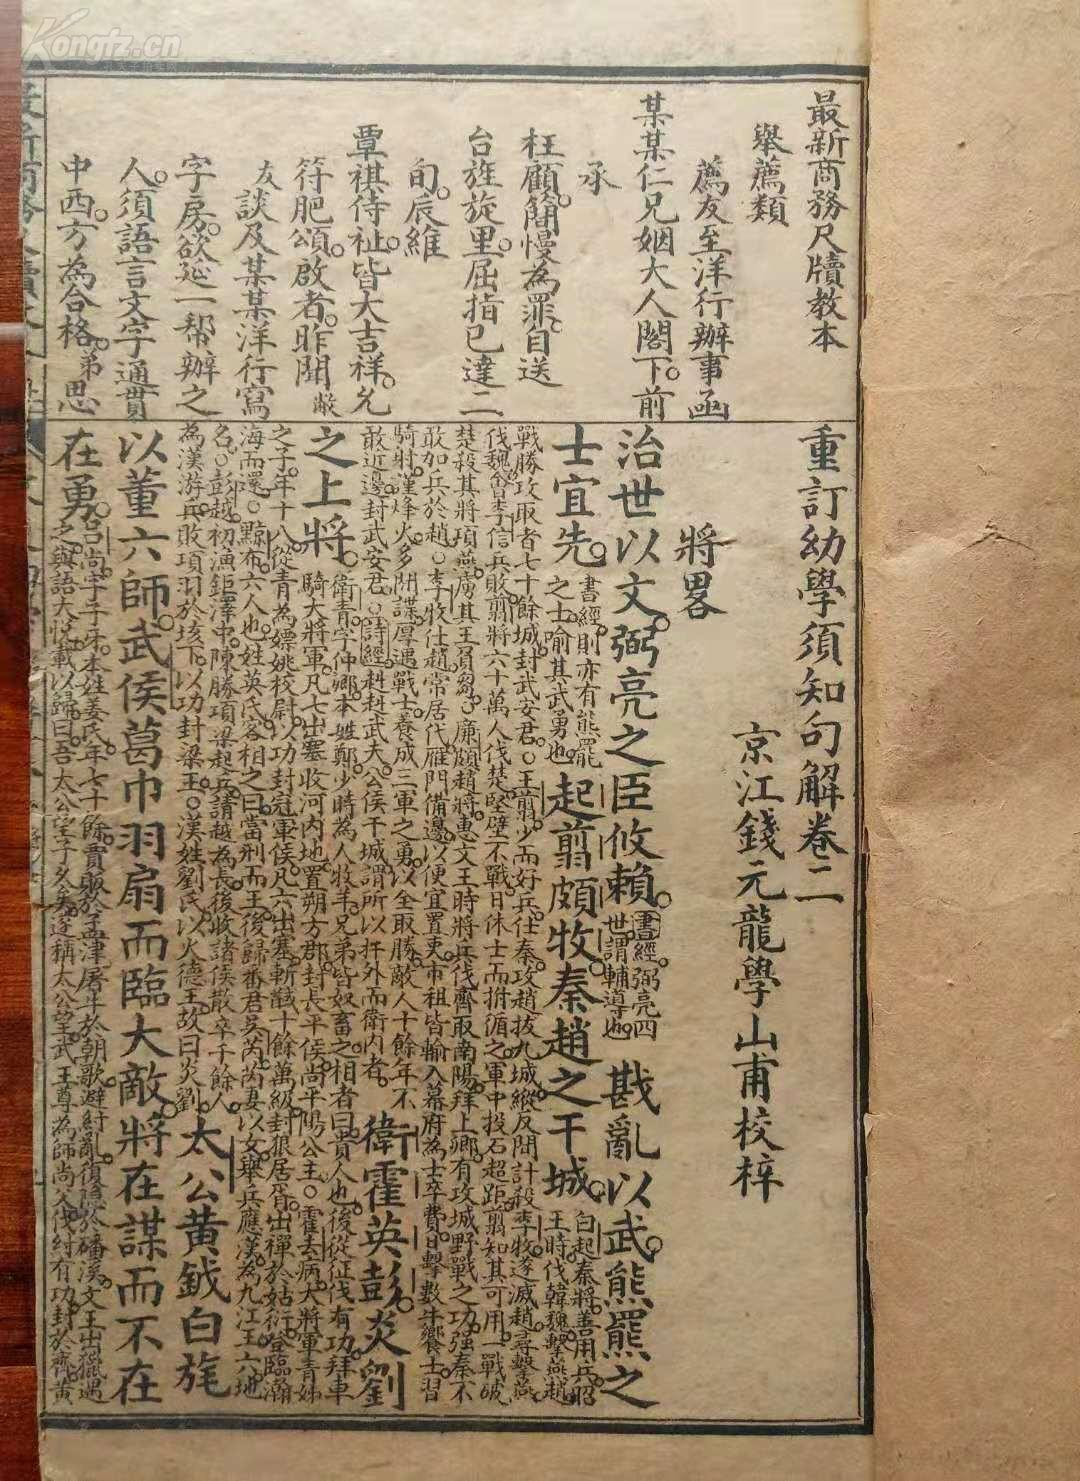 最新商務尺牘教本
舉薦類
薦友至洋行辦事函
某某仁兄姻大人閣下。前
承
枉顧。簡慢為罪。自送
台旌旋里。屈指已達二
旬。辰維
覃祺侍祉。皆大吉祥。允
符肥頌。啟者。昨聞敝
友談及某某洋行寫
字房。欲延一帮辦之
人。須語言文字通貫
中西。方為合格。弟思
重訂幼學須知句解卷二
京江錢元龍學山甫校梓
將畧
治世以文。弼亮之臣攸賴。書經弼亮四世謂輔導也 戡亂以武。熊羆之
士宜先。書經則亦有熊羆之士喻其武勇也 起翦頗牧。秦趙之干城。白起秦將善用兵昭王時伐韓魏擊燕趙
戰勝攻取者七十餘城封武安君。○王翦少而好兵仕秦攻趙拔九城縱反間計殺李牧遂滅趙尋擊燕
伐魏會李信兵敗翦將六十萬人伐楚堅壁不戰日休士而拊循之軍中投石超距翦知其可用一戰破
楚殺其將項燕虜其王負芻。廉頗趙將惠文王時將兵伐齊取南陽拜上卿有攻城野戰之功強秦不
敢加兵於趙。○李牧仕趙常居代雁門備邊以便宜置吏市租皆輸入幕府為士卒費日擊數牛饗士習
騎射謹烽火多間諜厚遇戰士養成三軍之勇以全取勝敵人十餘年不
敢近邊封武安君。○詩經赳赳武夫公侯干城謂所以扞外而衛內者。 衛霍英彭。炎劉
之上將。衛青字仲卿本姓鄭少時為人牧羊兄弟皆奴畜之相者曰貴人也後從征伐有功拜車
騎大將軍凡七出塞收河內地置朔方郡封長平侯尚平陽公主。○霍去病大將軍青姊
之子年十八從青為嫖姚校尉以功封冠軍侯凡六出塞斬馘十餘萬級封狼居胥山禪於姑衍登臨瀚
海而還。○黥布六人也姓英氏客相之曰當刑而王後歸番君吳芮芮妻以女舉兵應漢為九江王六地
名。○彭越初漁鉅澤中陳勝項梁起兵請越為長後收諸侯散卒千餘人
為漢游兵敗項羽於垓下以功封梁王。○漢姓劉氏以火德王故曰炎劉。 太公黄鉞白旄
以董六師。武侯葛巾羽扇而臨大敵。將在謀而不在
在勇。呂尚字子牙本姓姜氏年七十餘賣販於孟津屠牛於朝歌避紂亂復隱於磻溪文王出獵遇
之與語大悅載以歸曰吾太公望子久矣遂稱太公望武王尊為師尚父伐紂有功封於齊黃